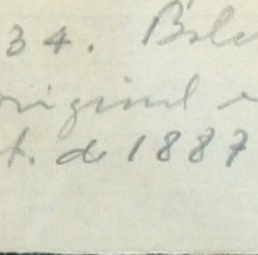 34. Bole
original e
t. de 1887